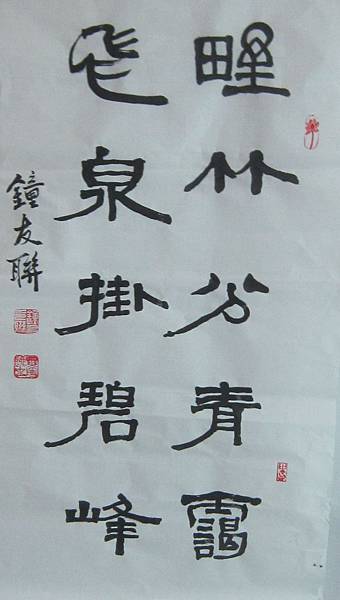 野竹分青靄
飛泉掛碧峰
鐘友聯